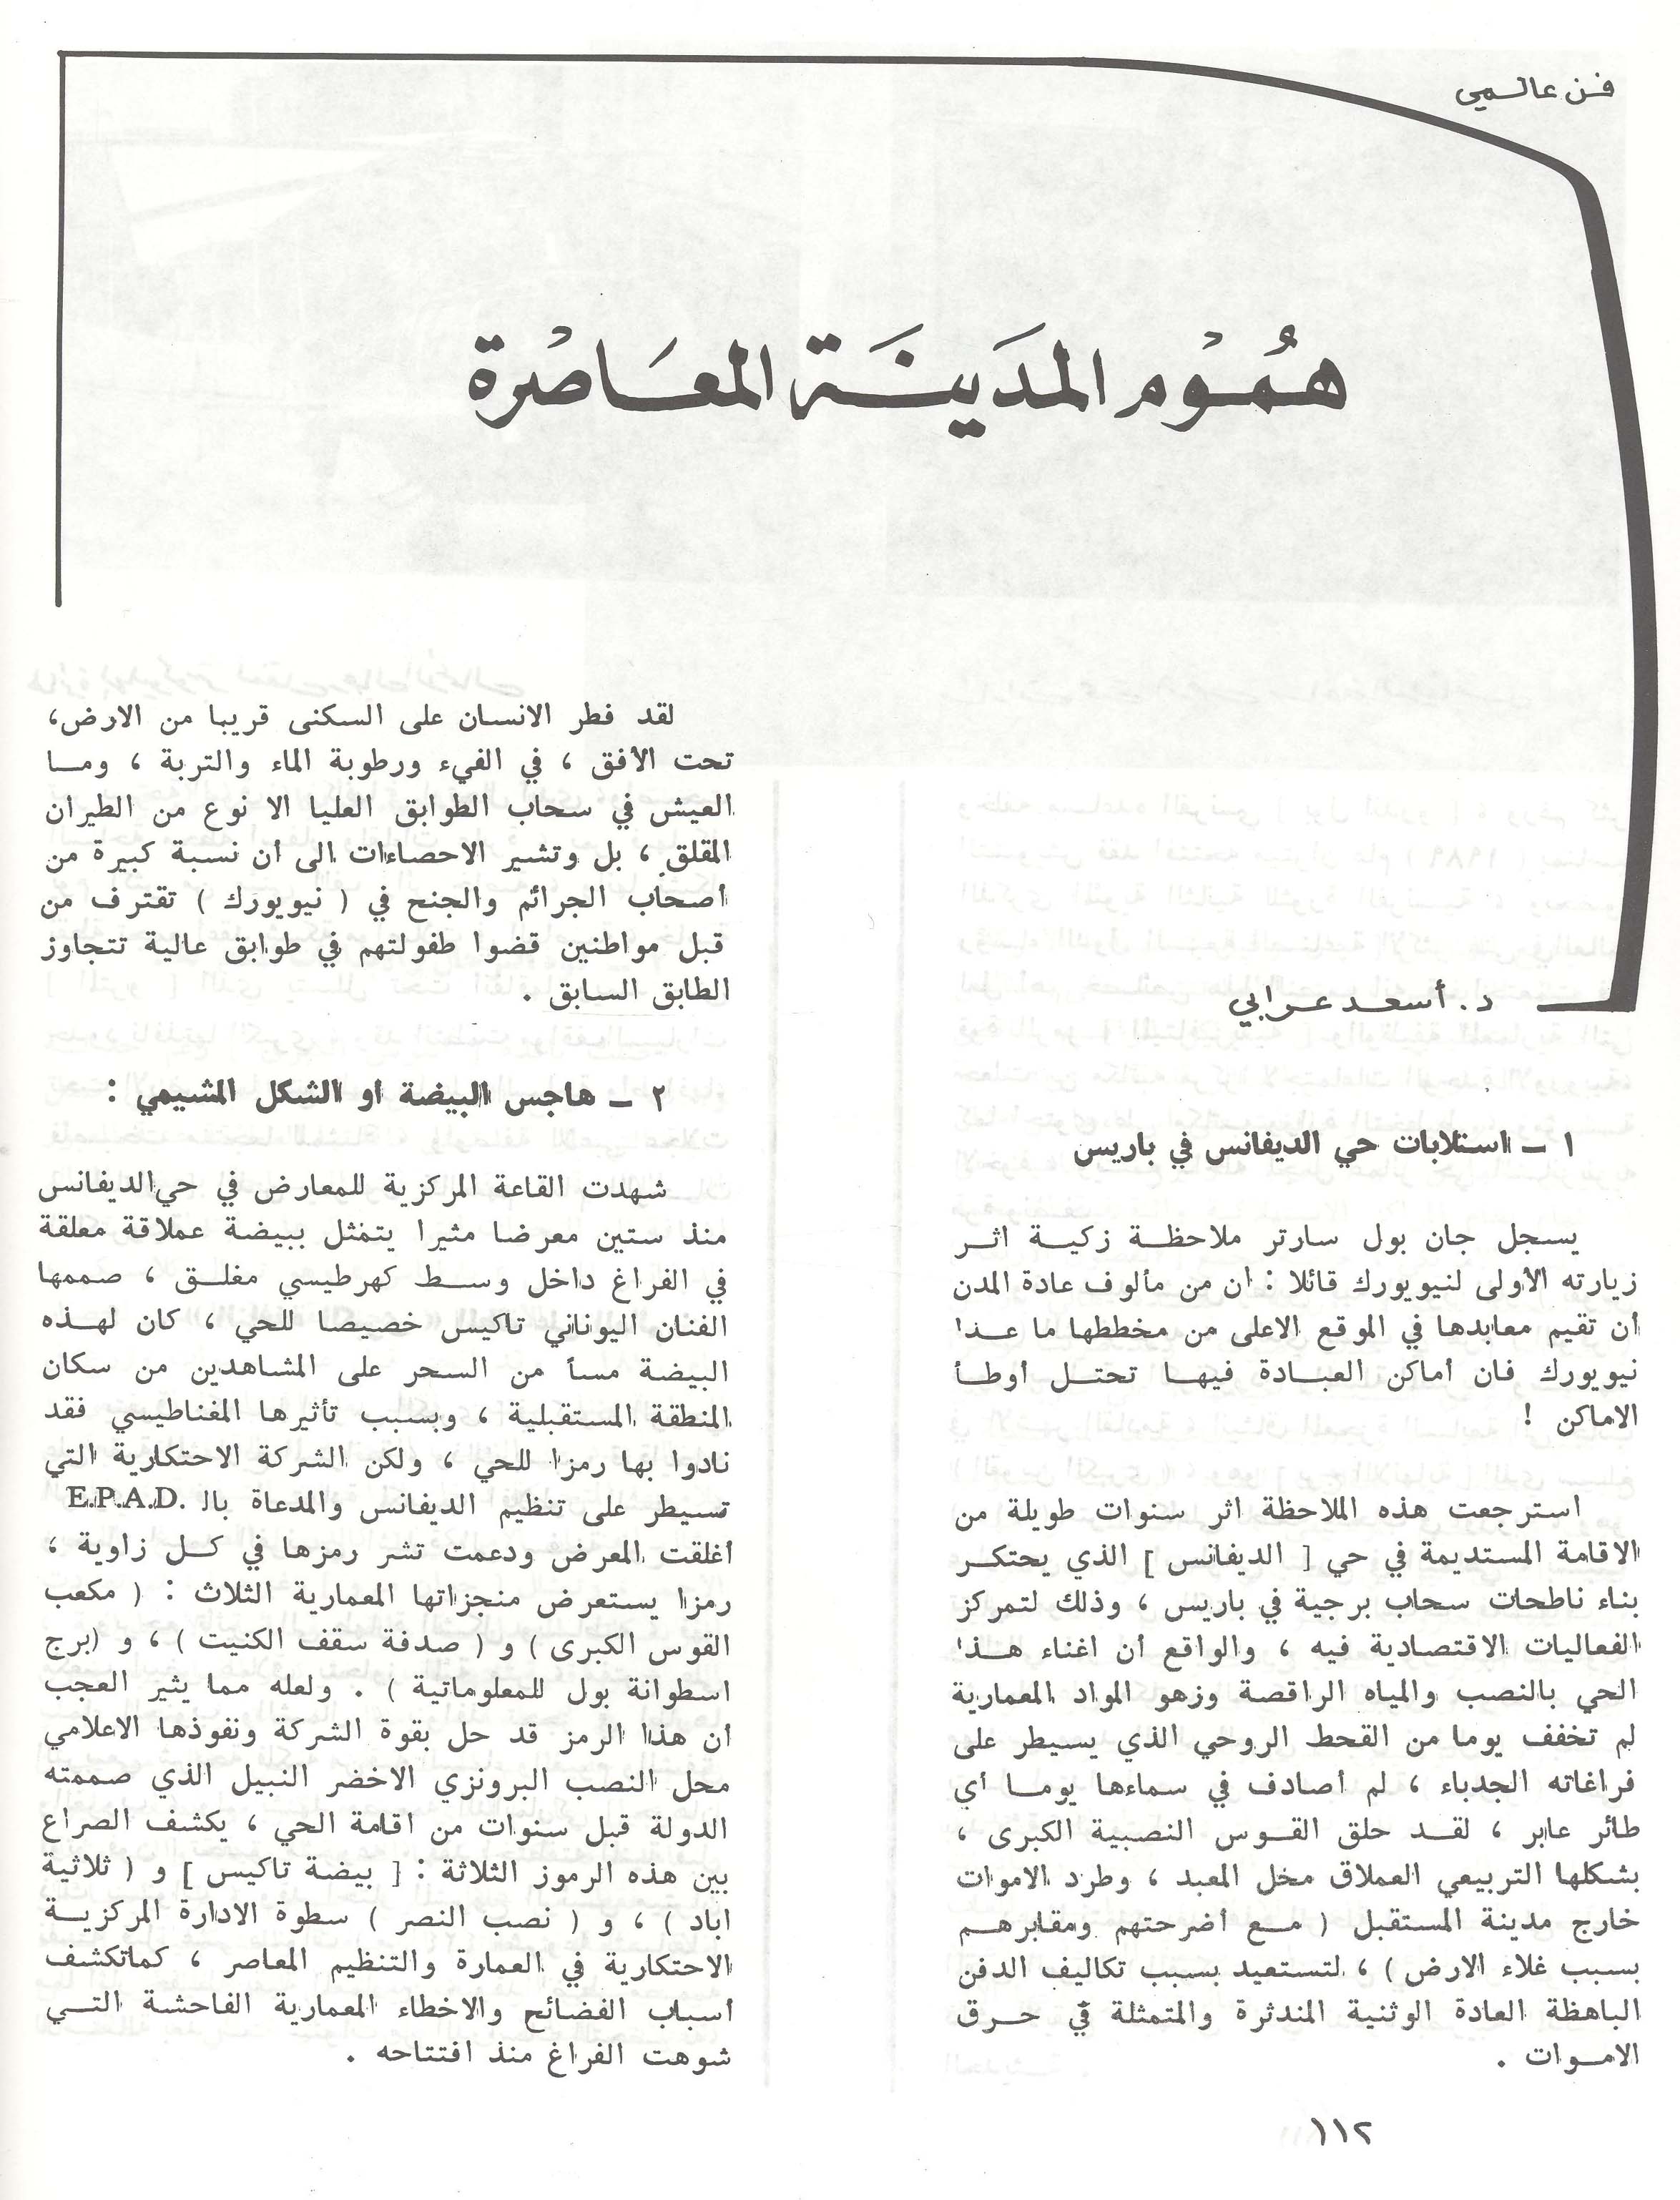 فن عالمي
هُمُوْم المدَينَة المعَاصْرة
د. أسعد عرابي
١ ــ استلابات حي الديفانس في باريس
يسجل جان بول سارتر ملاحظة زكية اثر
زيارته الأولى لنيويورك قائلا : ان من مألوف عادة المدن
أن تقيم معابدها في الموقع الاعلى من مخططها ما عدا
نيويورك فان أماكن العبادة فيها تحتل أوطأ
الاماكن !
استرجعت هذه الملاحظة اثر سنوات طويلة من
الاقامة المستديمة في حي [ الديفانس ] الذي يحتكر
بناء ناطحات سحاب برجية في باريس ، وذلك لتمركز
الفعاليات الاقتصادية فيه ، والواقع أن اغناء هذا
الحي بالنصب والمياه الراقصة وزهو المواد المعمارية
لم تخفف يوما من القحط الروحي الذي يسيطر على
فراغاته الجدباء ، لم أصادف في سماءها يوما أي
طائر عابر ، لقد حلق القوس النصبية الكبرى ،
بشكلها التربيعي العملاق مخل المعبد ، وطرد الاموات
خارج مدينة المستقبل ( مع أضرحتهم ومقابرهم
بسبب غلاء الارض ) ، لتستعيد بسبب تكاليف الدفن
الباهظة العادة الوثنية المندثرة والمتمثلة في حرق
الاموات .
لقد فطر الانسان على السكنى قريبا من الارض،
تحت الأفق ، في الفيء ورطوبة الماء والتربة ، وما
العيش في سحاب الطوابق العليا الا نوع من الطيران
المقلق ، بل وتشير الاحصاءات الى أن نسبة كبيرة من
أصحاب الجرائم والجنح في ( نيويورك ) تقترف من
قبل مواطنين قضوا طفولتهم في طوابق عالية تتجاوز
الطابق السابق .
٢ ــ هاجس البيضة او الشكل المشيمي :
شهدت القاعة المركزية للمعارض في حي الديفانس
منذ ستين معرضا مثيرا يتمثل ببيضة عملاقة معلقة
في الفراغ داخل وسط كهرطيسي مغلق ، صممها
الفنان اليوناني تاكيس خصيصا للحي ، كان لهذه
البيضة مسأ من السحر على المشاهدين من سكان
المنطقة المستقبلية ، وبسبب تأثيرها المغناطيسي فقد
نادوا بها رمزا للحي ، ولكن الشركة الاحتكارية التي
تسيطر على تنظيم الديفانس والمدعاة بالـ E.P.A.D.
أغلقت المعرض ودعمت تشر رمزها في كل زاوية ،
رمزا يستعرض منجزاتها المعمارية الثلاث : ( مكعب
القوس الكبرى ) و ( صدفة سقف الكنيت ) ، و (برج
اسطوانة بول للمعلوماتية ) . ولعله مما يثير العجب
أن هذا الرمز قد حل بقوة الشركة ونفوذها الاعلامي
محل النصب البرونزي الاخضر النبيل الذي صممته
الدولة قبل سنوات من اقامة الحي ، يكشف الصراع
بين هذه الرموز الثلاثة : [ بيضة تاكيس ] و ( ثلاثية
اباد ) ، و ( نصب النصر ) سطوة الادارة المركزية
الاحتكارية في العمارة والتنظيم المعاصر ، كماتكشف
أسباب الفضائح والاخطاء المعمارية الفاحشة التي
شوهت الفراغ منذ افتتاحه .
١١٢